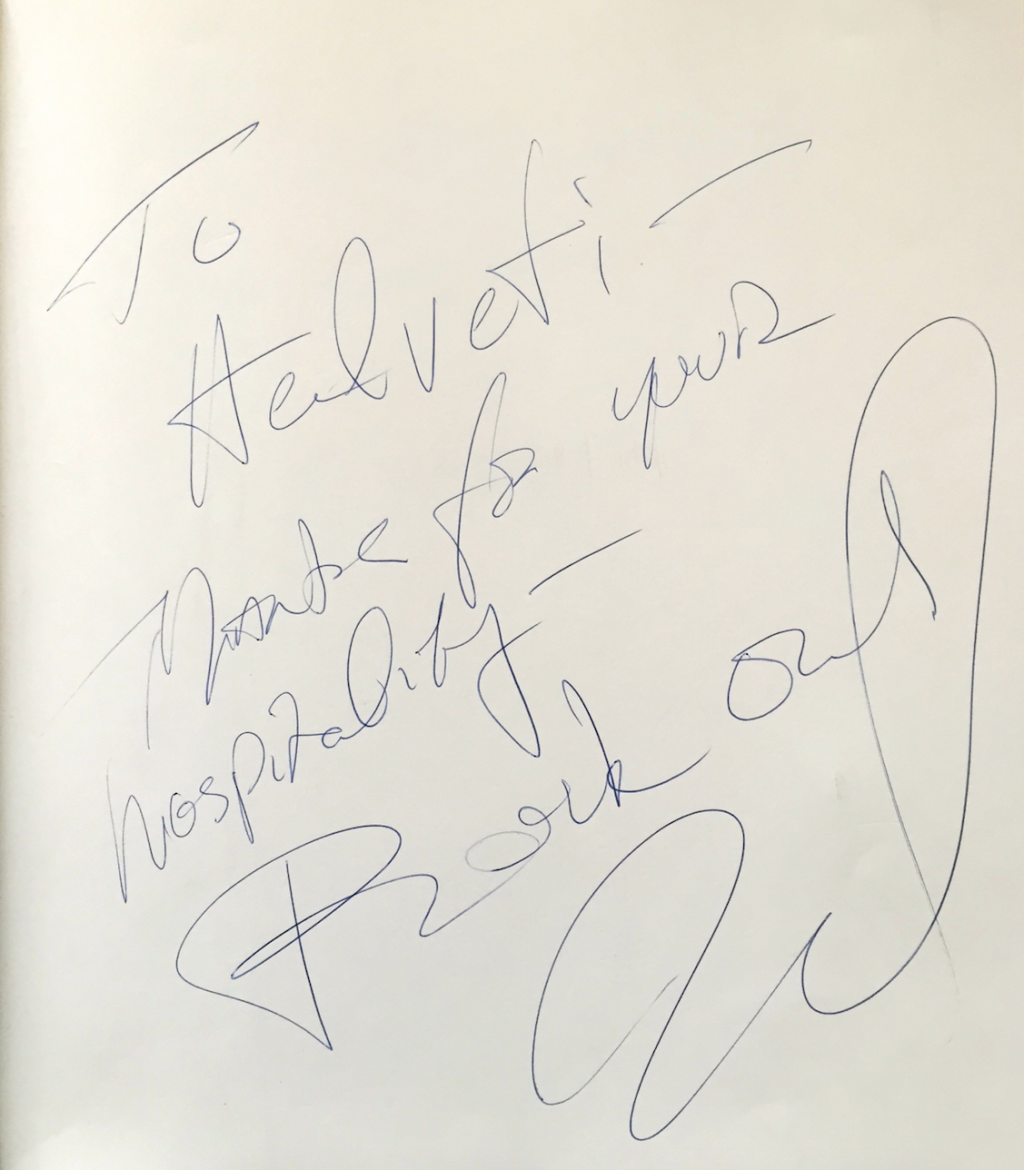 To
Helveti -
Thanks for your
hospitality -
Rock on!